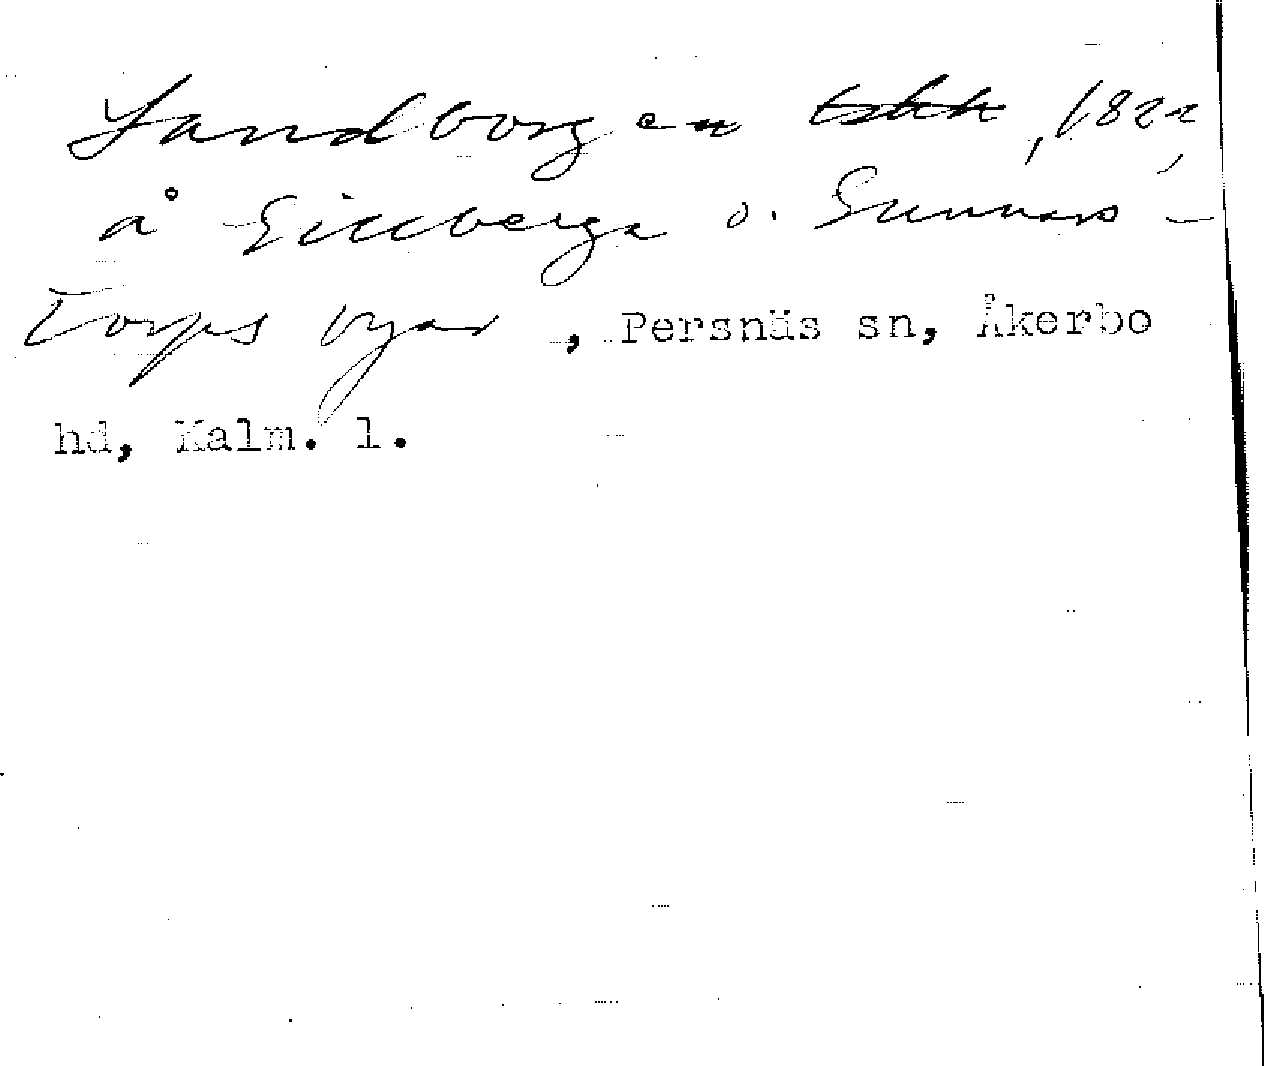 Landborgen , 1822,
å Gillberga o. Gunnars-
torps byar , Persnäs sn, Åkerbo
hd, Kalm. l.